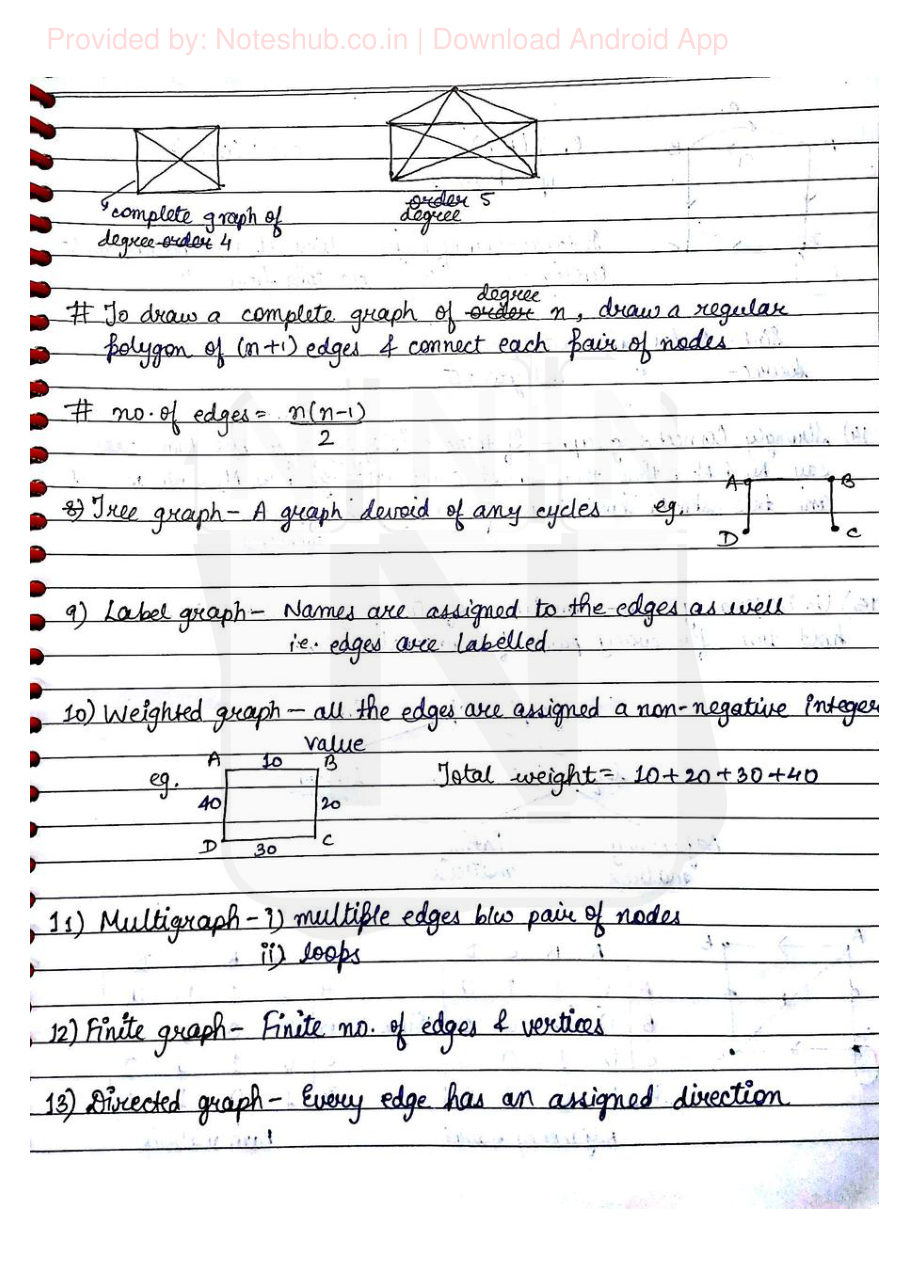 Provided by: Noteshub.co.in | Download Android App
complete graph of
degree order 4
order 5
degree
degree
# To draw a complete graph of order n, draw a regular
polygon of (n+1) edges & connect each pair of nodes
# no. of edges = n(n-1)
2
8) Tree graph - A graph devoid of any cycles eg.
A B
D C
9) Label graph - Names are assigned to the edges as well
i.e. edges are labelled
10) Weighted graph - all the edges are assigned a non-negative integer
value
A 10 B
eg. Total weight = 10+20+30+40
40 20
D 30 C
11) Multigraph - i) multiple edges b/w pair of nodes
ii) loops
12) Finite graph - Finite no. of edges & vertices
13) Directed graph - Every edge has an assigned direction